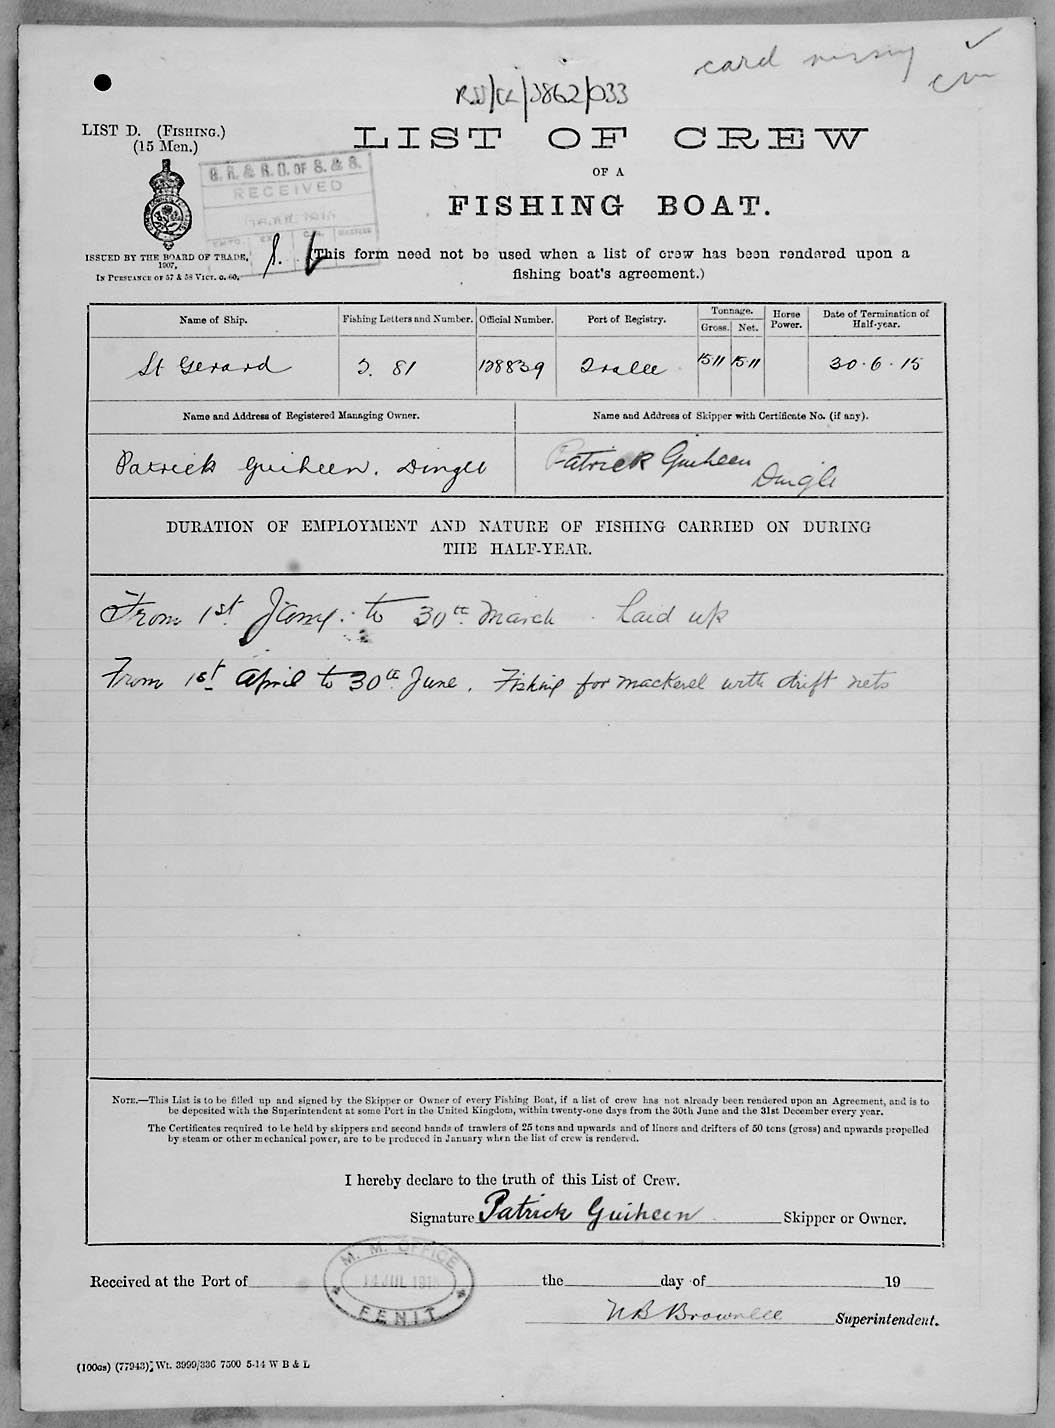 card missing
RSS/CL/3862/033
LIST D. (FISHING.)
(15 Men.)
LIST OF CREW
OF A
FISHING BOAT.
G. R. & R. O. OF S. & S.
RECEIVED
ISSUED BY THE BOARD OF TRADE,
1907,
IN PURSUANCE OF 57 & 58 VICT. C. 60.
(This form need not be used when a list of crew has been rendered upon a
fishing boat's agreement.)
Name of Ship. Fishing Letters and Number. Official Number. Port of Registry. Tonnage. Gross. Net. Horse Power. Date of Termination of Half-year.
St Gerard T. 81 128839 Tralee 15.11 15.11 30.6.15
Name and Address of Registered Managing Owner. Name and Address of Skipper with Certificate No. (if any).
Patrick Guiheen. Dingle Patrick Guiheen
Dingle
DURATION OF EMPLOYMENT AND NATURE OF FISHING CARRIED ON DURING
THE HALF-YEAR.
From 1st Jany. to 30th March . Laid up
From 1st April to 30th June. Fishing for mackerel with drift nets
NOTE.—This List is to be filled up and signed by the Skipper or Owner of every Fishing Boat, if a list of crew has not already been rendered upon an Agreement, and is to
be deposited with the Superintendent at some Port in the United Kingdom, within twenty-one days from the 30th June and the 31st December every year.
The Certificates required to be held by skippers and second hands of trawlers of 25 tons and upwards and of liners and drifters of 50 tons (gross) and upwards propelled
by steam or other mechanical power, are to be produced in January when the list of crew is rendered.
I hereby declare to the truth of this List of Crew.
Signature Patrick Guiheen Skipper or Owner.
M. M. OFFICE
14 JUL 1915
FENIT
Received at the Port of the day of 19
N B Brownlee Superintendent.
(100gs) (77943). Wt. 3999/336 7500 5-14 W B & L